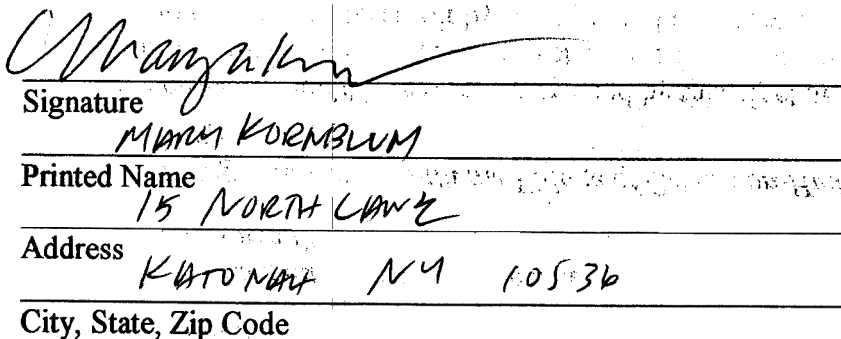 Signature
MARY KORNBLUM
Printed Name
15 NORTH LANE
Address
KATONAH NY 10536
City, State, Zip Code